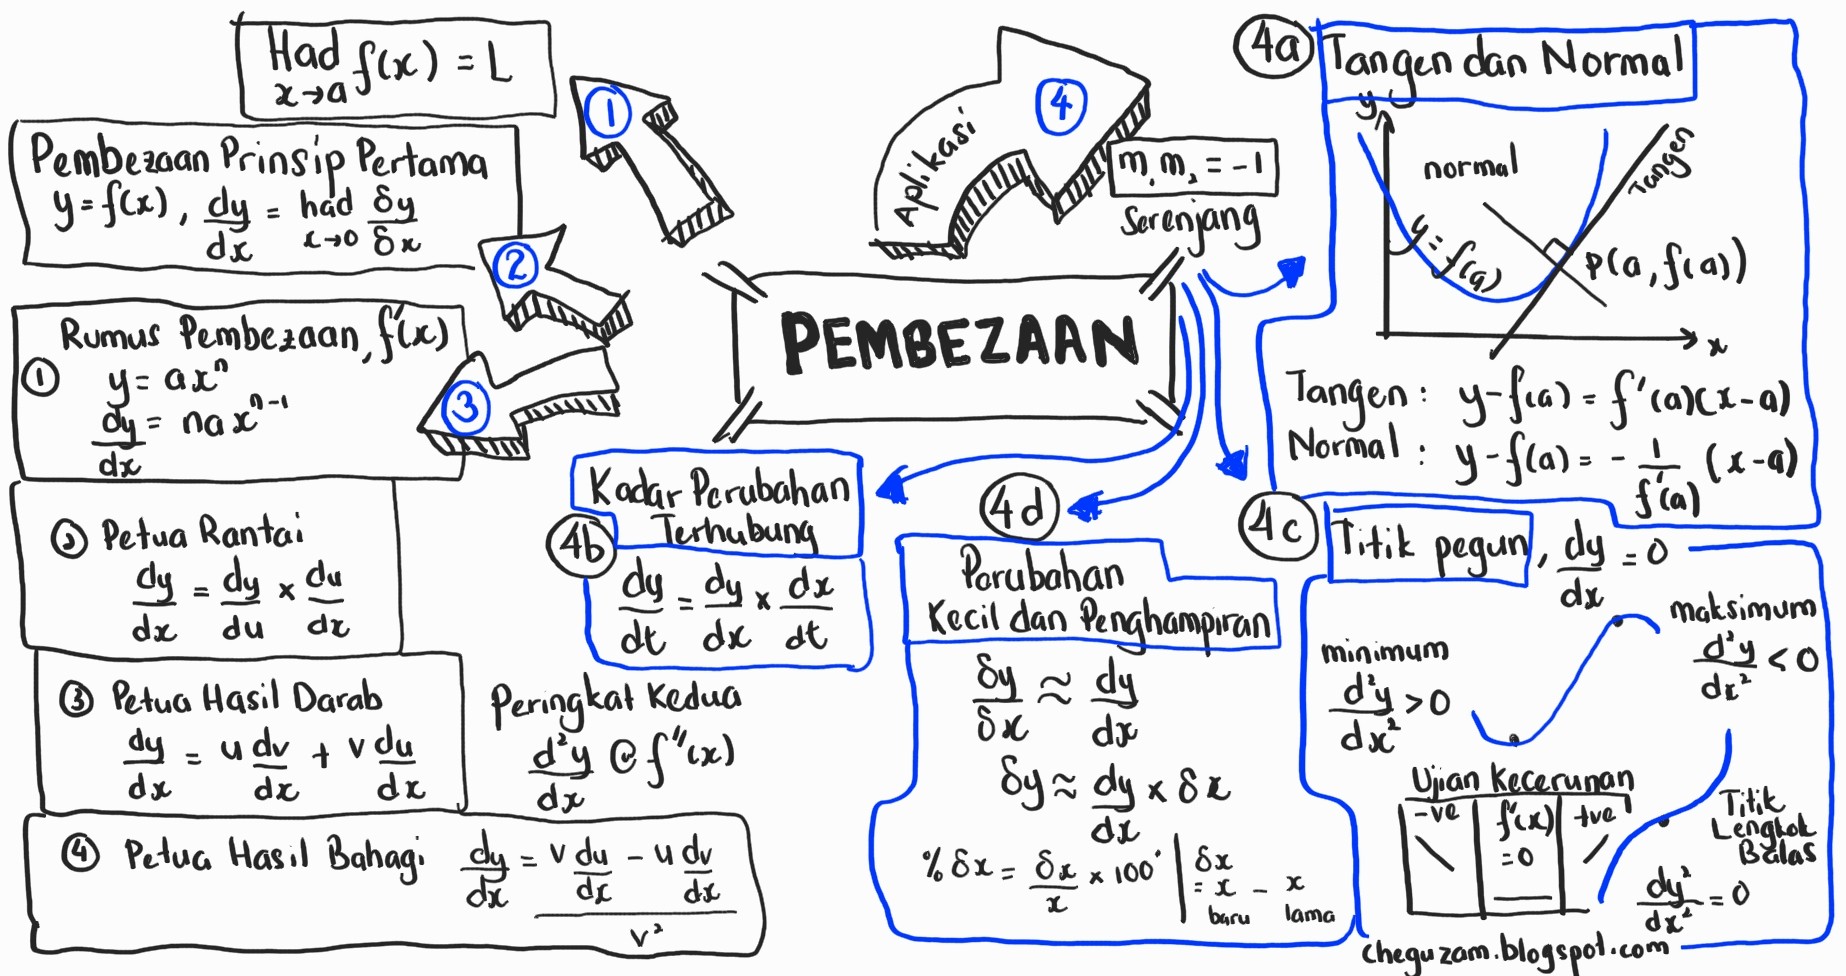 Had f(x) = L
x→a
1
Pembezaan Prinsip Pertama
y = f(x), dy/dx = had x→0 δy/δx
2
Rumus Pembezaan, f'(x)
① y = ax^n
dy/dx = nax^(n-1)
3
② Petua Rantai
dy/dx = dy/du × du/dx
③ Petua Hasil Darab
dy/dx = u dv/dx + v du/dx
④ Petua Hasil Bahagi dy/dx = (v du/dx - u dv/dx)/v²
Peringkat Kedua
d²y/dx @ f''(x)
PEMBEZAAN
Aplikasi
4
m₁m₂ = -1
Serenjang
4a
Tangen dan Normal
y
normal
Tangen
y = f(a)
P(a, f(a))
x
Tangen : y-f(a) = f'(a)(x-a)
Normal : y-f(a) = - 1/f'(a) (x-a)
4b
Kadar Perubahan
Terhubung
dy/dt = dy/dx × dx/dt
4d
Perubahan
Kecil dan Penghampiran
δy/δx ≈ dy/dx
δy ≈ dy/dx × δx
% δx = δx/x × 100
δx
= x - x
baru lama
4c
Titik pegun, dy/dx = 0
minimum
d²y/dx² > 0
maksimum
d²y/dx² < 0
Ujian Kecerunan
-ve f'(x) +ve
= 0
Titik
Lengkok
Balas
dy²/dx² = 0
cheguzam.blogspot.com